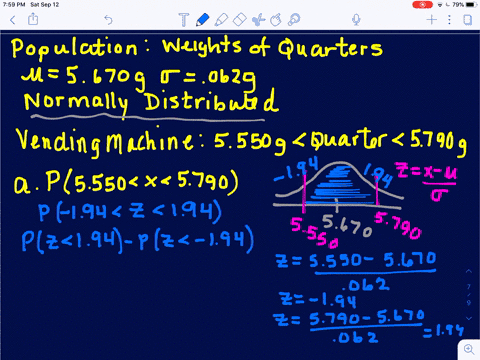 7:59 PM Sat Sep 12
79%
Population: Weights of Quarters
μ = 5.670g σ = .062g
Normally Distributed
Vending Machine: 5.550g < Quarter < 5.790g
a. P(5.550 < x < 5.790)
P(-1.94 < z < 1.94)
P(z < 1.94) - P(z < -1.94)
-1.94 1.94
z = x-μ
σ
5.550 5.670 5.790
z = 5.550 - 5.670
.062
z = -1.94
z = 5.790 - 5.670
.062 = 1.94